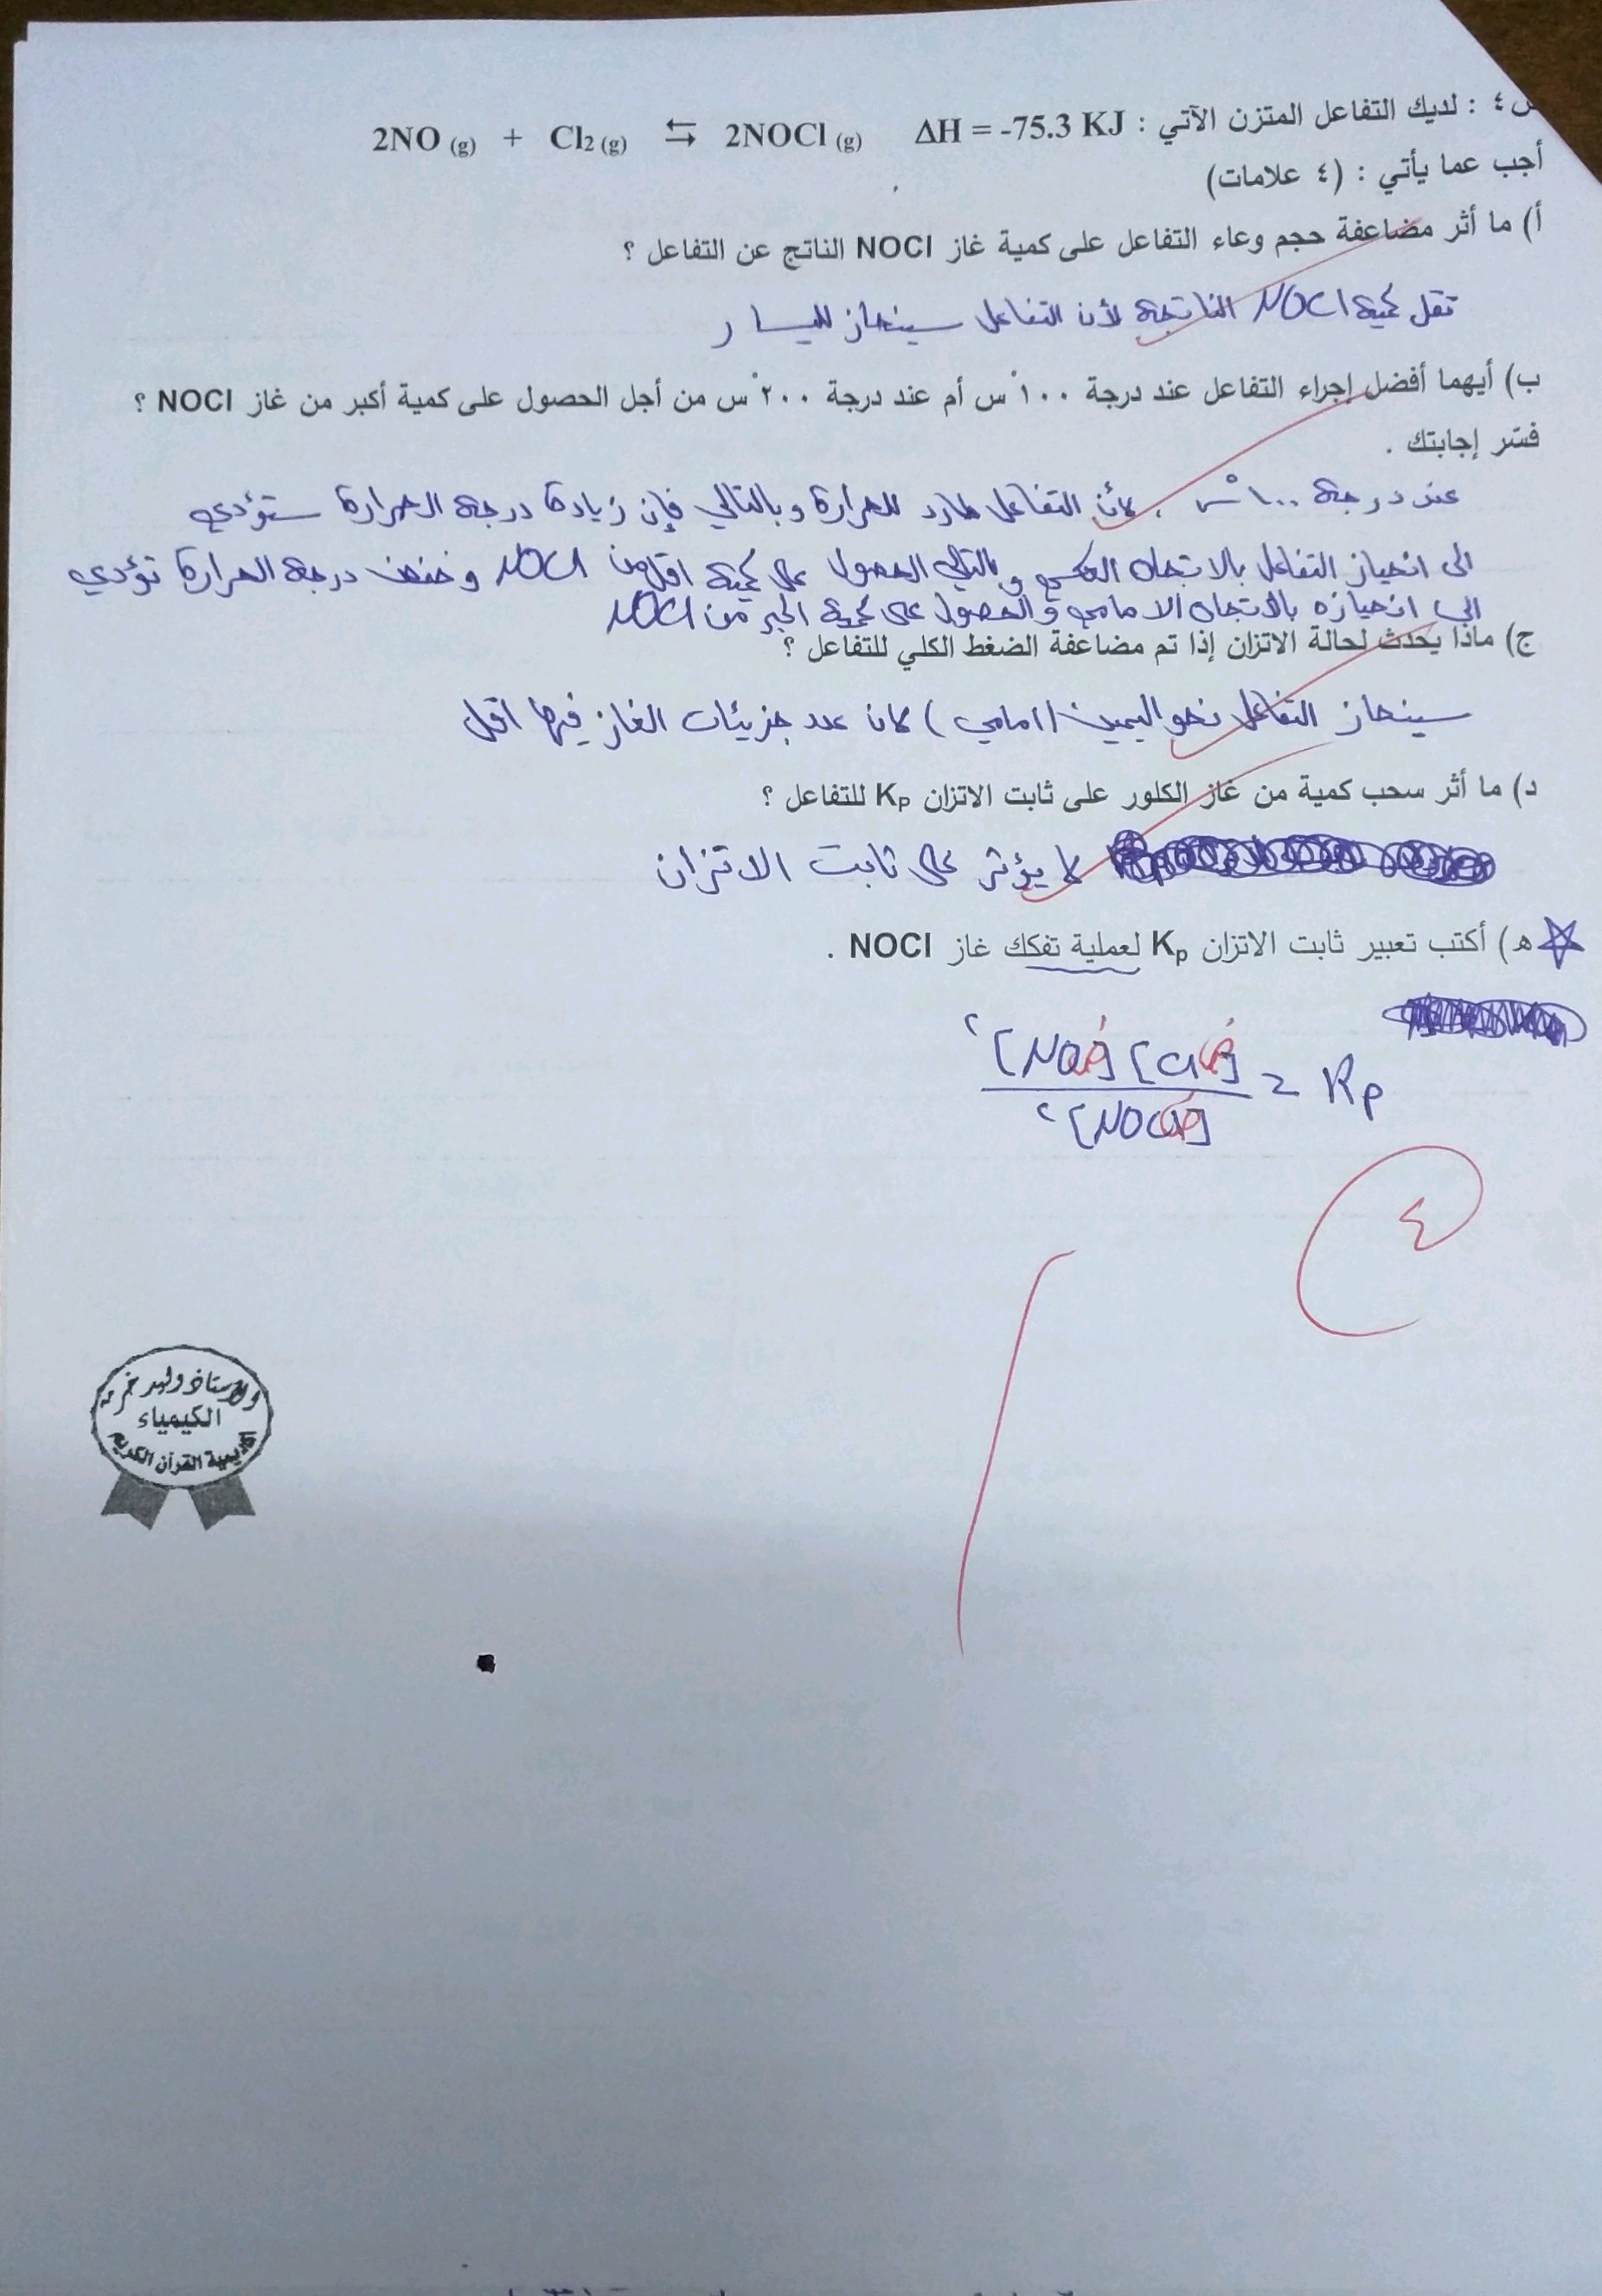 س٤ : لديك التفاعل المتزن الآتي : 2NO (g) + Cl2 (g) ⇆ 2NOCl (g) ΔH = -75.3 KJ
أجب عما يأتي : (٤ علامات)
أ) ما أثر مضاعفة حجم وعاء التفاعل على كمية غاز NOCl الناتج عن التفاعل ؟
تقل كمية NOCl الناتجة لأن التفاعل سينحاز لليسار
ب) أيهما أفضل إجراء التفاعل عند درجة ١٠٠ْ س أم عند درجة ٢٠٠ْ س من أجل الحصول على كمية أكبر من غاز NOCl ؟
فسّر إجابتك .
عند درجة ١٠٠ْ س ، لأن التفاعل طارد للحرارة وبالتالي فإن زيادة درجة الحرارة ستؤدي
الى انحياز التفاعل بالاتجاه العكسي وبالتالي الحصول على كمية اقل من NOCl وخفض درجة الحرارة تؤدي
الى انحيازه بالاتجاه الامامي والحصول على كمية اكبر من NOCl
ج) ماذا يحدث لحالة الاتزان إذا تم مضاعفة الضغط الكلي للتفاعل ؟
سينحاز التفاعل نحو اليمين (امامي) لان عدد جزيئات الغاز فيها اقل
د) ما أثر سحب كمية من غاز الكلور على ثابت الاتزان Kp للتفاعل ؟
لا يؤثر على ثابت الاتزان
هـ) أكتب تعبير ثابت الاتزان Kp لعملية تفكك غاز NOCl .
Kp = ٢[NO] [Cl٢]
٢[NOCl]
٤
الاستاذ وليد خمرة
الكيمياء
اكاديمية القرآن الكريم